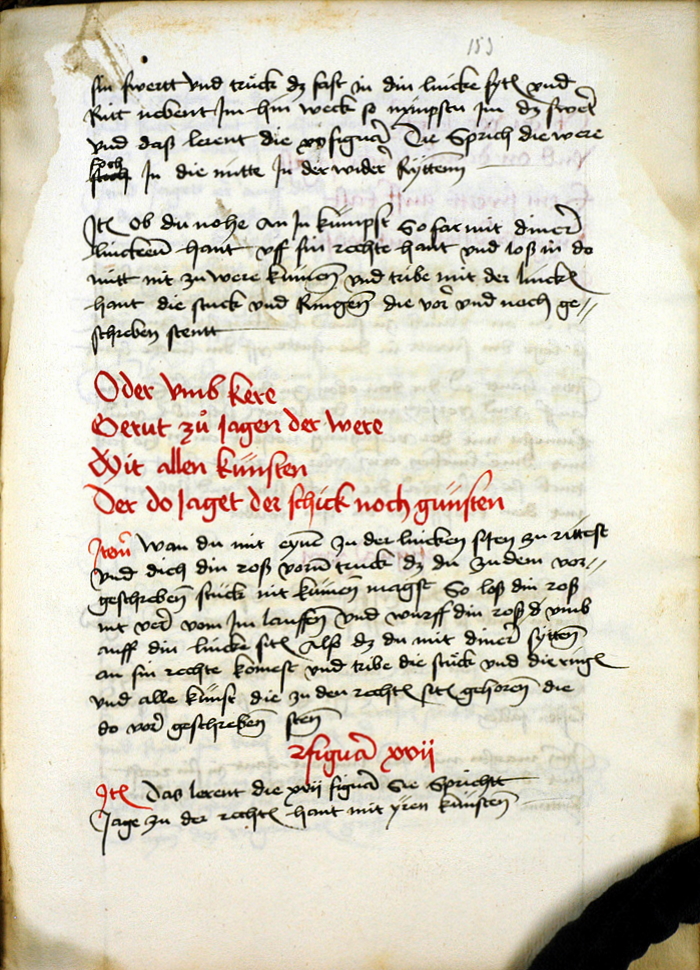 153
sin swertt vnd truck dz fast in din lincke sytẽ vnd
Ritt nebent Im hin weck so nympstu im dz swert
vnd daß lerent die xvj figuar̃ Die Sprich die were
hoch In die mitte In der wider Ryttenn
Itẽ Ob du nohe an In kumpst So far mit diner̃
linckenn hant vff sin rechte hant vnd loß in do
mitt nit zu were kumen̄ vnd tribe mit der linckẽ
hant die stuck vnd Ringen̄ die vor̃ vnd noch ge//
schreben stentt
Oder vmb kere
Gerut zů Jagen der were
Mit allen künsten
Der do Jaget der schick noch günsten
Item̃ Wan du mit eyne̅ zu der lincken siten zu rittest
vnd dich din roß vorun̄ truck dz du zu dem vor//
geschreben̄ stuck nit kumen̄ magst So loß din roß
nit ver̃ vom Im lauffen̄ vnd wurff din roß vmb
auff din lincke sitẽ Alß dz du mit diner̃ sytten̄
an sin rechte komest vnd tribe die stuck vnd die ringẽ
vnd alle kunst die zu den rechtẽ sitẽ gehoren̄ die
do vor̃ geschreben̄ sten̄
figuar̃ xvij
Itẽ Das lerent die xvij figuar̃ Sie Sprichtt
Jage zu der rechtẽ hant mit yren kunsten̄